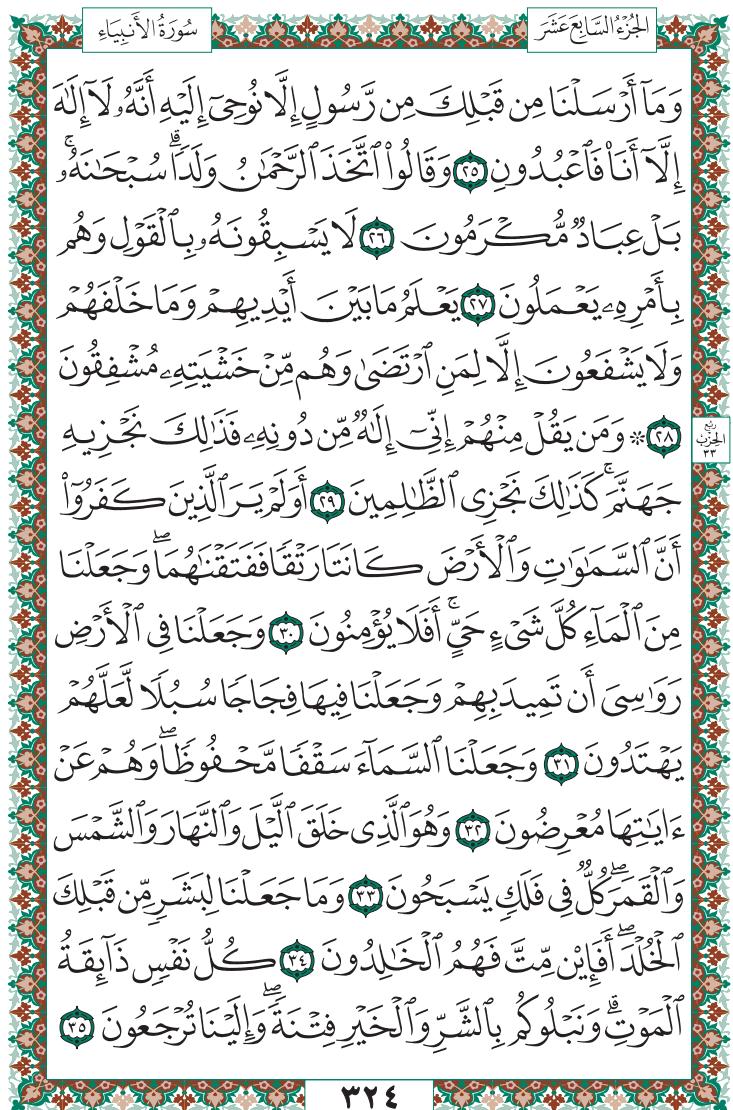 سُورَةُ الأَنبِيَاءِ
الجُزْءُ السَّابِعَ عَشَرَ
وَمَآ أَرْسَلْنَا مِن قَبْلِكَ مِن رَّسُولٍ إِلَّا نُوحِىٓ إِلَيْهِ أَنَّهُۥ لَآ إِلَٰهَ
إِلَّآ أَنَا۠ فَٱعْبُدُونِ ٢٥ وَقَالُوا۟ ٱتَّخَذَ ٱلرَّحْمَٰنُ وَلَدًا ۗ سُبْحَٰنَهُۥ ۚ
بَلْ عِبَادٌ مُّكْرَمُونَ ٢٦ لَا يَسْبِقُونَهُۥ بِٱلْقَوْلِ وَهُم
بِأَمْرِهِۦ يَعْمَلُونَ ٢٧ يَعْلَمُ مَا بَيْنَ أَيْدِيهِمْ وَمَا خَلْفَهُمْ
وَلَا يَشْفَعُونَ إِلَّا لِمَنِ ٱرْتَضَىٰ وَهُم مِّنْ خَشْيَتِهِۦ مُشْفِقُونَ
٢٨ ۞ وَمَن يَقُلْ مِنْهُمْ إِنِّىٓ إِلَٰهٌ مِّن دُونِهِۦ فَذَٰلِكَ نَجْزِيهِ
جَهَنَّمَ ۚ كَذَٰلِكَ نَجْزِى ٱلظَّٰلِمِينَ ٢٩ أَوَلَمْ يَرَ ٱلَّذِينَ كَفَرُوٓا۟
أَنَّ ٱلسَّمَٰوَٰتِ وَٱلْأَرْضَ كَانَتَا رَتْقًا فَفَتَقْنَٰهُمَا ۖ وَجَعَلْنَا
مِنَ ٱلْمَآءِ كُلَّ شَىْءٍ حَىٍّ ۚ أَفَلَا يُؤْمِنُونَ ٣٠ وَجَعَلْنَا فِى ٱلْأَرْضِ
رَوَٰسِىَ أَن تَمِيدَ بِهِمْ وَجَعَلْنَا فِيهَا فِجَاجًا سُبُلًا لَّعَلَّهُمْ
يَهْتَدُونَ ٣١ وَجَعَلْنَا ٱلسَّمَآءَ سَقْفًا مَّحْفُوظًا ۖ وَهُمْ عَنْ
ءَايَٰتِهَا مُعْرِضُونَ ٣٢ وَهُوَ ٱلَّذِى خَلَقَ ٱلَّيْلَ وَٱلنَّهَارَ وَٱلشَّمْسَ
وَٱلْقَمَرَ ۖ كُلٌّ فِى فَلَكٍ يَسْبَحُونَ ٣٣ وَمَا جَعَلْنَا لِبَشَرٍ مِّن قَبْلِكَ
ٱلْخُلْدَ ۖ أَفَإِي۟ن مِّتَّ فَهُمُ ٱلْخَٰلِدُونَ ٣٤ كُلُّ نَفْسٍ ذَآئِقَةُ
ٱلْمَوْتِ ۗ وَنَبْلُوكُم بِٱلشَّرِّ وَٱلْخَيْرِ فِتْنَةً ۖ وَإِلَيْنَا تُرْجَعُونَ ٣٥
ربع
الحزب
٣٣
٣٢٤